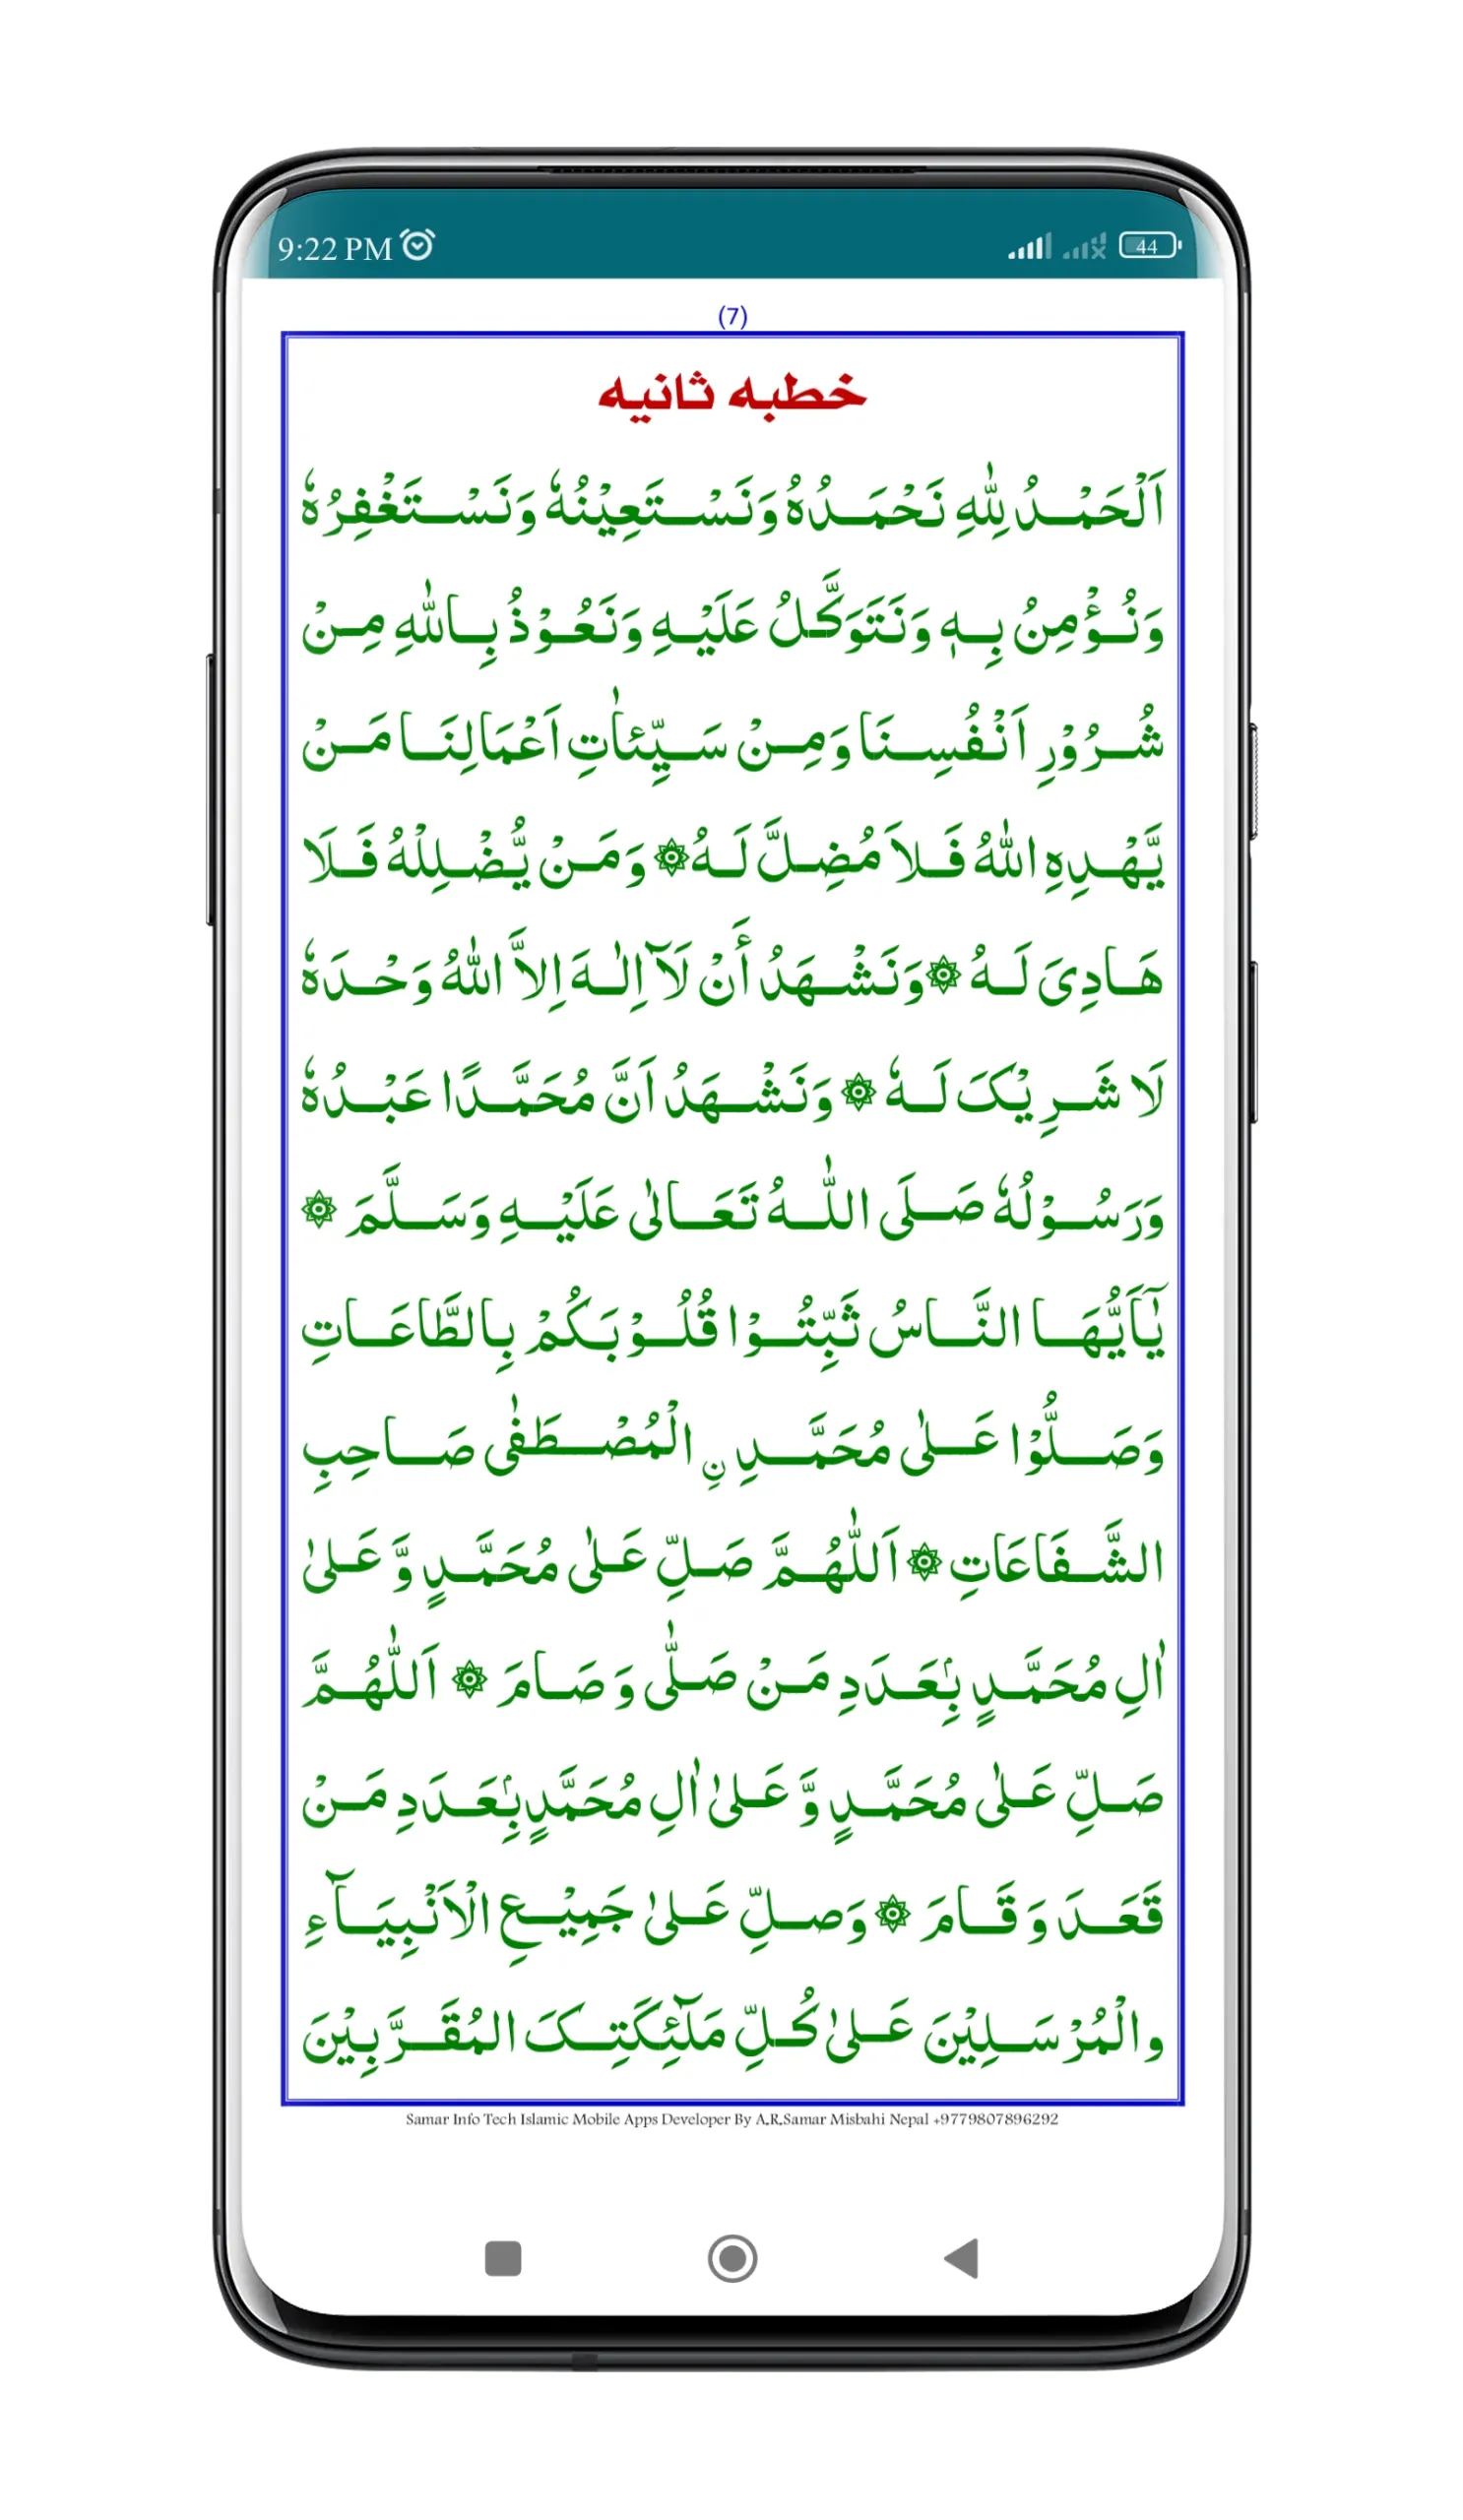 9:22 PM
44
(7)
خطبه ثانيه
اَلْحَمْدُ لِلّٰهِ نَحْمَدُهُ وَنَسْتَعِيْنُهٗ وَنَسْتَغْفِرُهٗ
وَنُؤْمِنُ بِهٖ وَنَتَوَكَّلُ عَلَيْهِ وَنَعُوْذُ بِاللّٰهِ مِنْ
شُرُوْرِ اَنْفُسِنَا وَمِنْ سَيِّئٰاتِ اَعْمَالِنَا مَنْ
يَّهْدِهِ اللّٰهُ فَلاَ مُضِلَّ لَهُ ۞ وَمَنْ يُّضْلِلْهُ فَلَا
هَادِىَ لَهُ ۞ وَنَشْهَدُ أَنْ لَآ اِلٰهَ اِلاَّ اللّٰهُ وَحْدَهٗ
لَا شَرِيْکَ لَهٗ ۞ وَنَشْهَدُ اَنَّ مُحَمَّدًا عَبْدُهٗ
وَرَسُوْلُهٗ صَلَى اللّٰهُ تَعَالٰى عَلَيْهِ وَسَلَّمَ ۞
يٰٓاَيُّهَا النَّاسُ ثَبِّتُوْا قُلُوْبَكُمْ بِالطَّاعَاتِ
وَصَلُّوْا عَلٰى مُحَمَّدِ نِ الْمُصْطَفٰى صَاحِبِ
الشَّفَاعَاتِ ۞ اَللّٰهُمَّ صَلِّ عَلٰى مُحَمَّدٍ وَّ عَلىٰ
اٰلِ مُحَمَّدٍ بِۢعَدَدِ مَنْ صَلّٰى وَصَامَ ۞ اَللّٰهُمَّ
صَلِّ عَلٰى مُحَمَّدٍ وَّ عَلىٰ اٰلِ مُحَمَّدٍ بِۢعَدَدِ مَنْ
قَعَدَ وَقَامَ ۞ وَصلِّ عَلىٰ جَمِيْعِ الْاَنْبِيَآءِ
والْمُرْسَلِيْنَ عَلىٰ كُلِّ مَلٰٓئِكَتِکَ المُقَرَّبِيْنَ
Samar Info Tech Islamic Mobile Apps Developer By A.R.Samar Misbahi Nepal +9779807896292